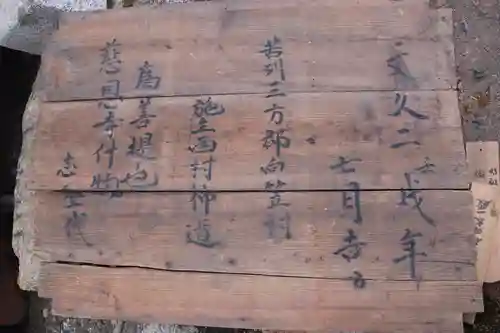 文久二壬戌年
七月吉日
若州三方郡向笠村
施主西村柿道
為善提也
慈恩寺什物